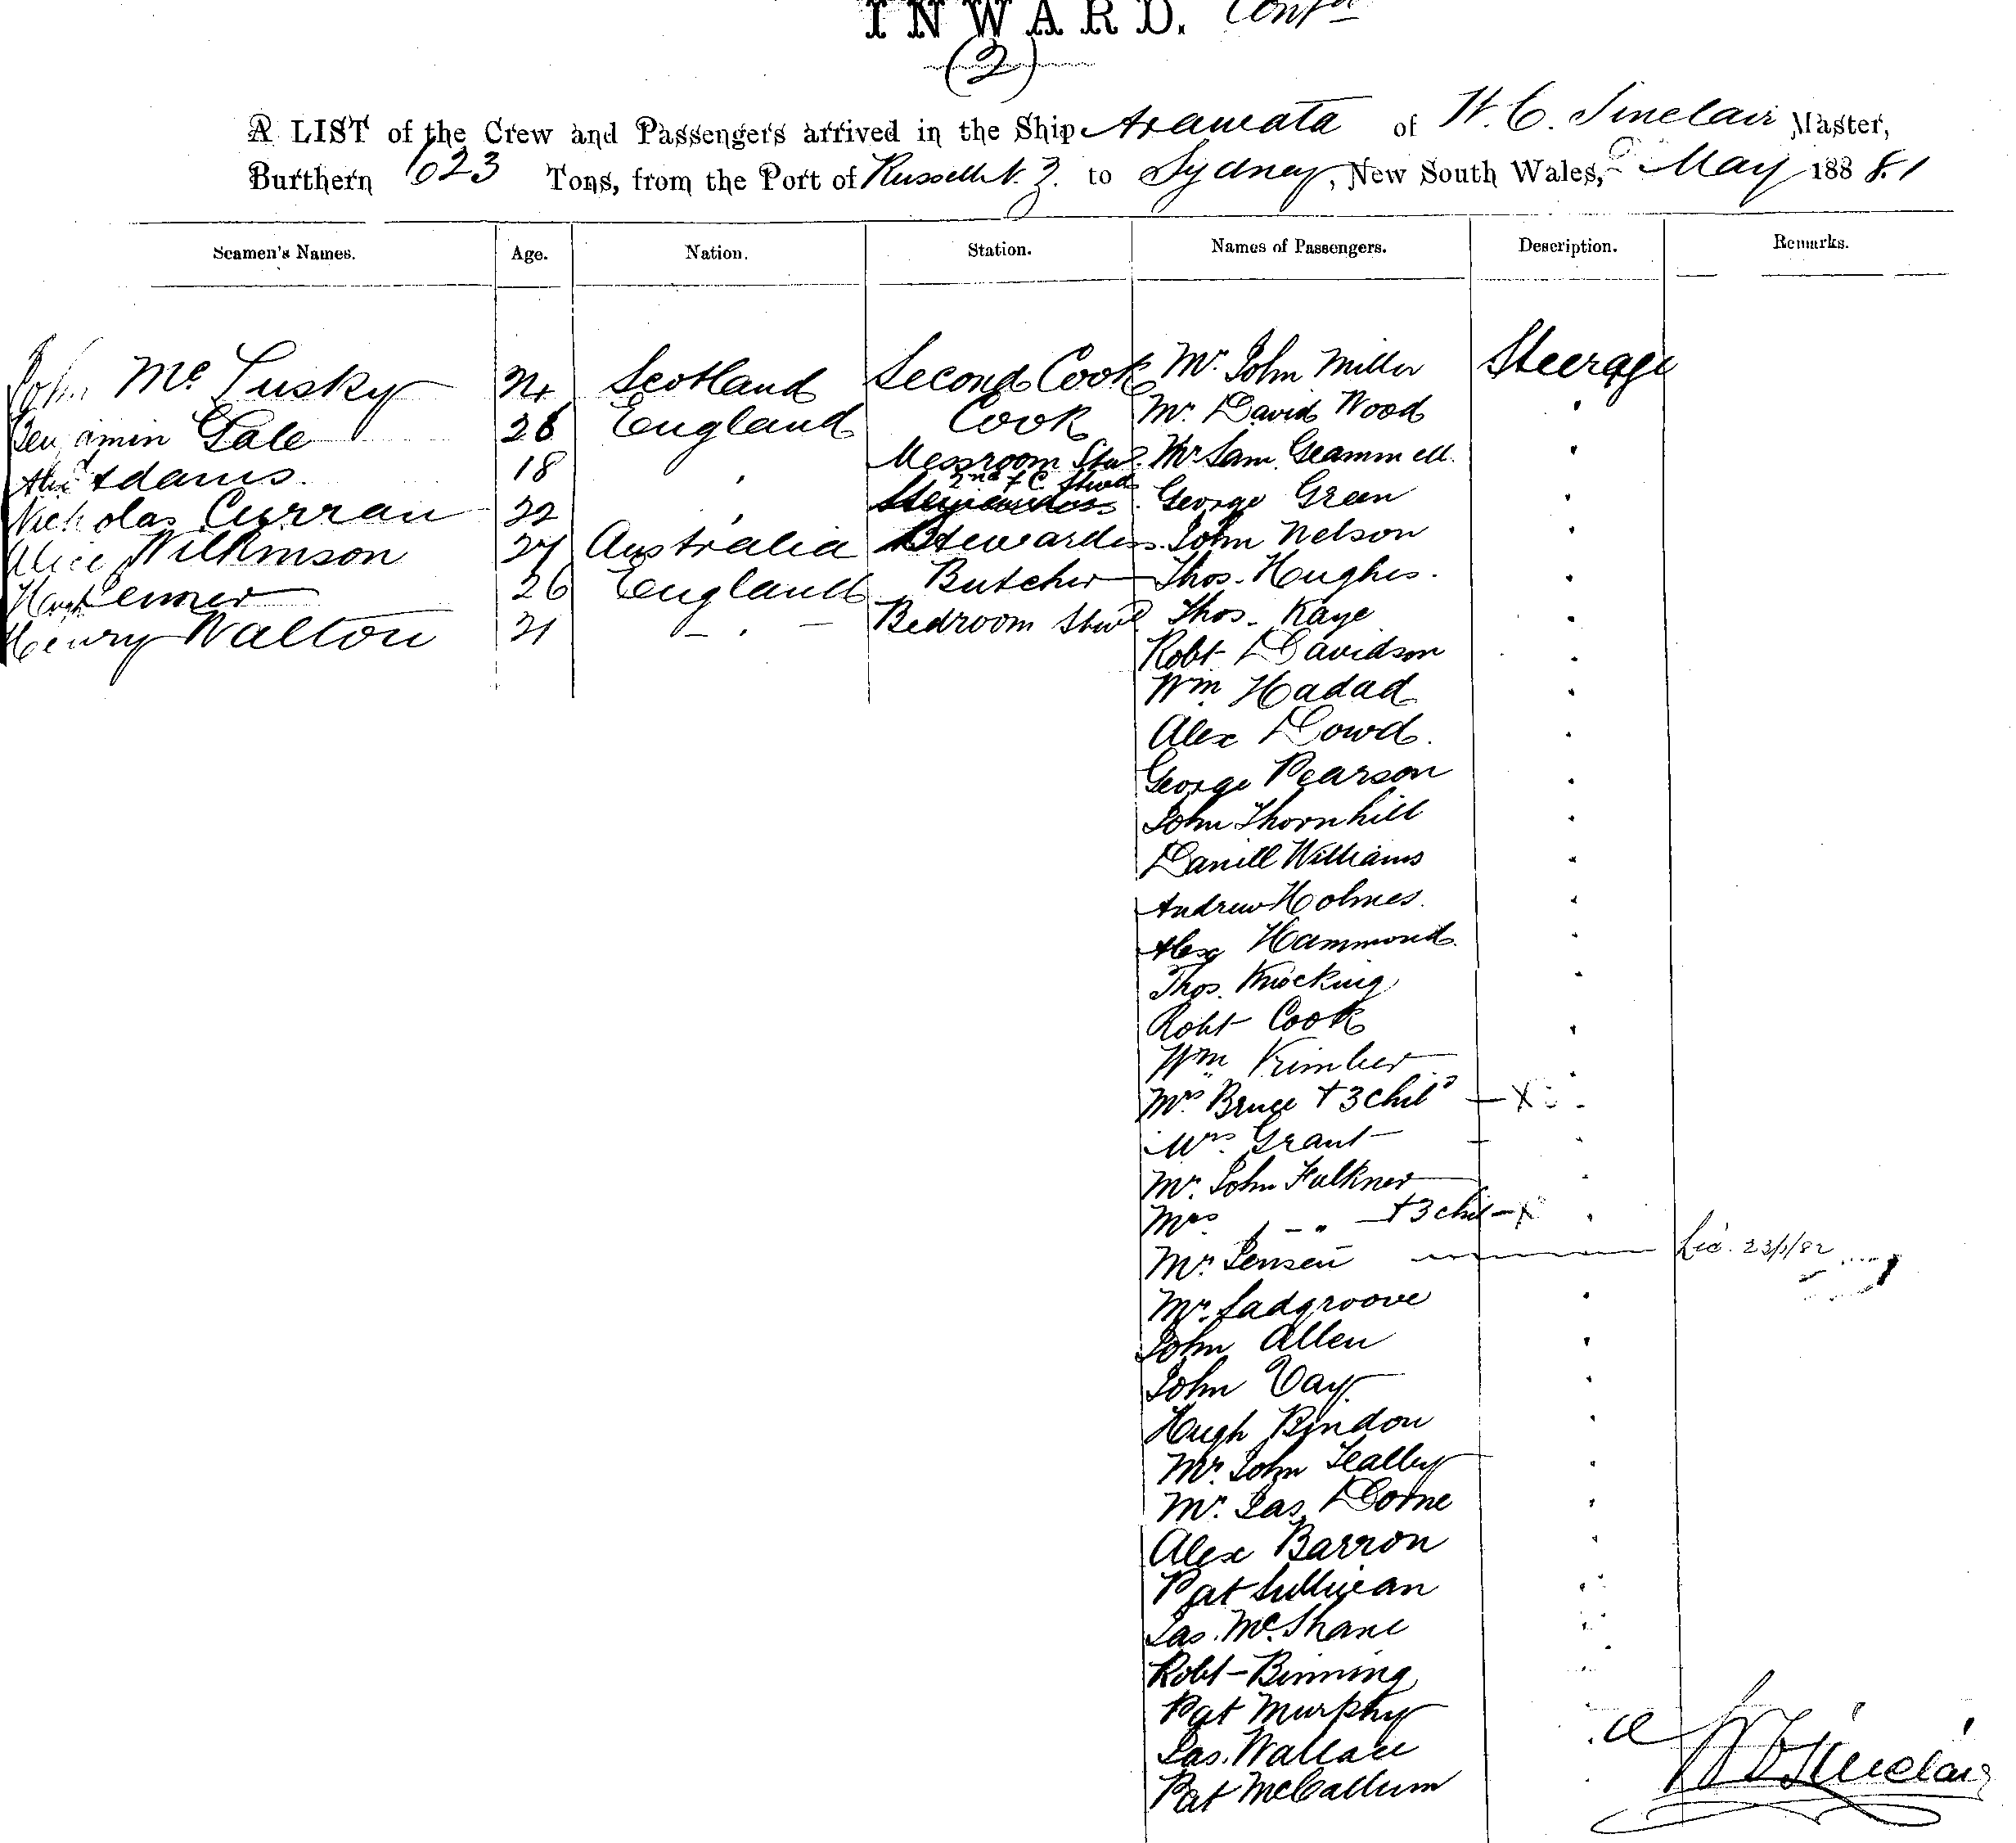 INWARD. Contd
(2)
A LIST of the Crew and Passengers arrived in the Ship Arawata of W. C. Sinclair Master,
Burthern 623 Tons, from the Port of Russell N. Z. to Sydney, New South Wales, 2 May 188 8.1
Seamen's Names. Age. Nation. Station. Names of Passengers. Description. Remarks.
John Mc Lusky Scotland Second Cook Mr John Miller Steerage
Benjamin Gale 26 England Cook Mr David Wood "
Alex Adams 18 " Messroom Stwd. Mr Sam Geammell "
Nicholas Curran 22 " 2nd F C Stwd George Green "
Alice Wilkinson 27 Australia Stewardess John Nelson "
26 England Butcher Thos. Hughes. "
Henry Walton 21 - " - Bedroom Stwd Thos. Kaye "
Robt Davidson "
Wm Hadad "
Alex Dowd. "
George Pearson "
John Thornhill "
Daniell Williams "
Andrew Holmes. "
Alex Hammond. "
Thos. Knocking "
Robt Cook "
Wm Kimber "
Mrs Bruce + 3 Chil — X "
Mrs Grant — "
Mr. John Falkner "
Mrs " - " + 3 chil — X "
Mr Jensen Lic.
Mr. Sadgroove "
John Allen "
John Day "
Hugh Bindon "
Mr. John Tealley "
Mr. Jas. Dorne "
Alex Barron "
Pat Sullivan "
Jas. Mc Shane "
Robt Binning "
Pat Murphy "
Jas. Wallace
Pat McCallum
W C Sinclair